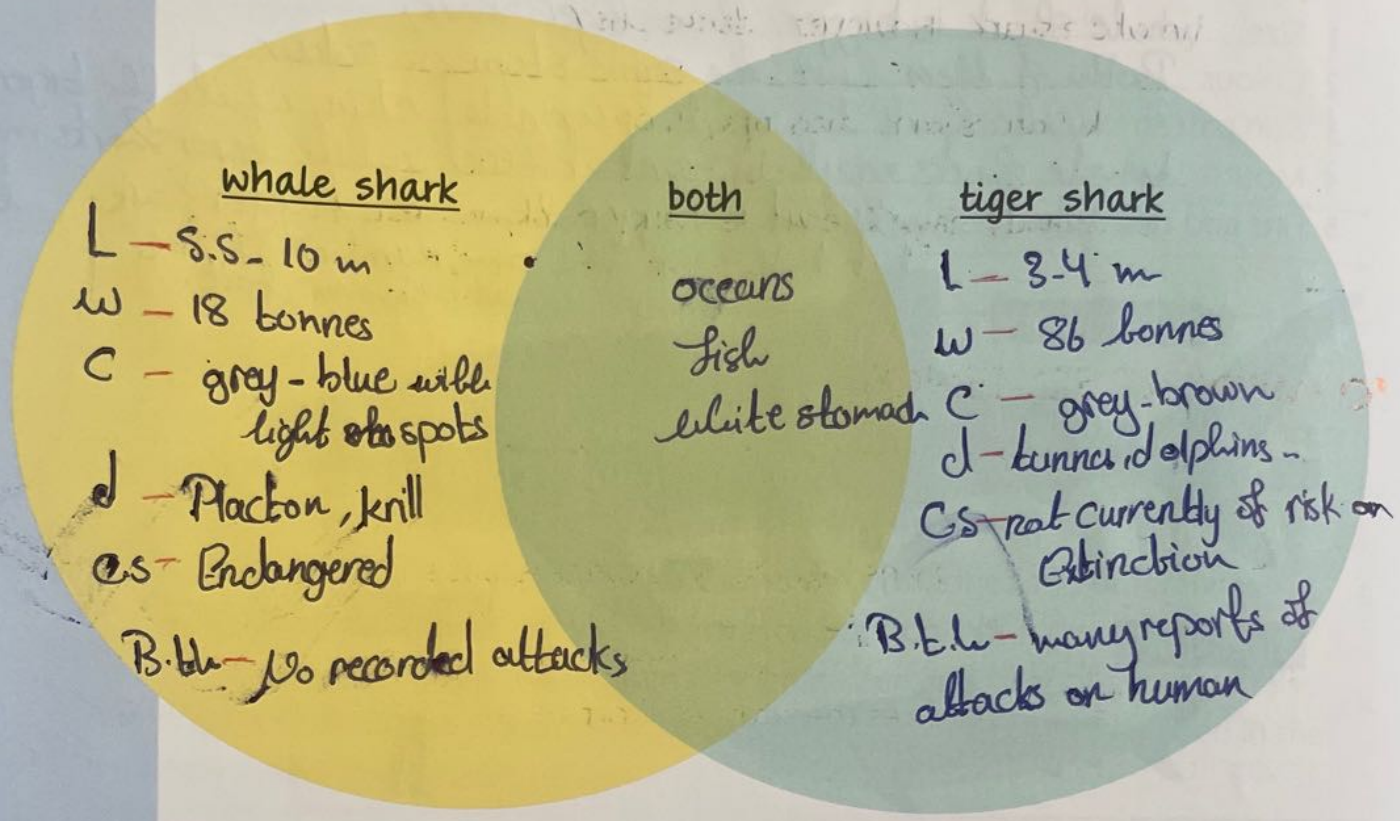 whale shark
L – 5.5 - 10 m
W – 18 tonnes
C – grey - blue with
light spots
d – Placton, krill
cs – Endangered
B.th – No recorded attacks
both
oceans
fish
white stomach
tiger shark
L – 3-4 m
W – 86 tonnes
C – grey-brown
d – tunna, dolphins -
Cs – not currently of risk on
Extinction
B.t.h – many reports of
attacks on human